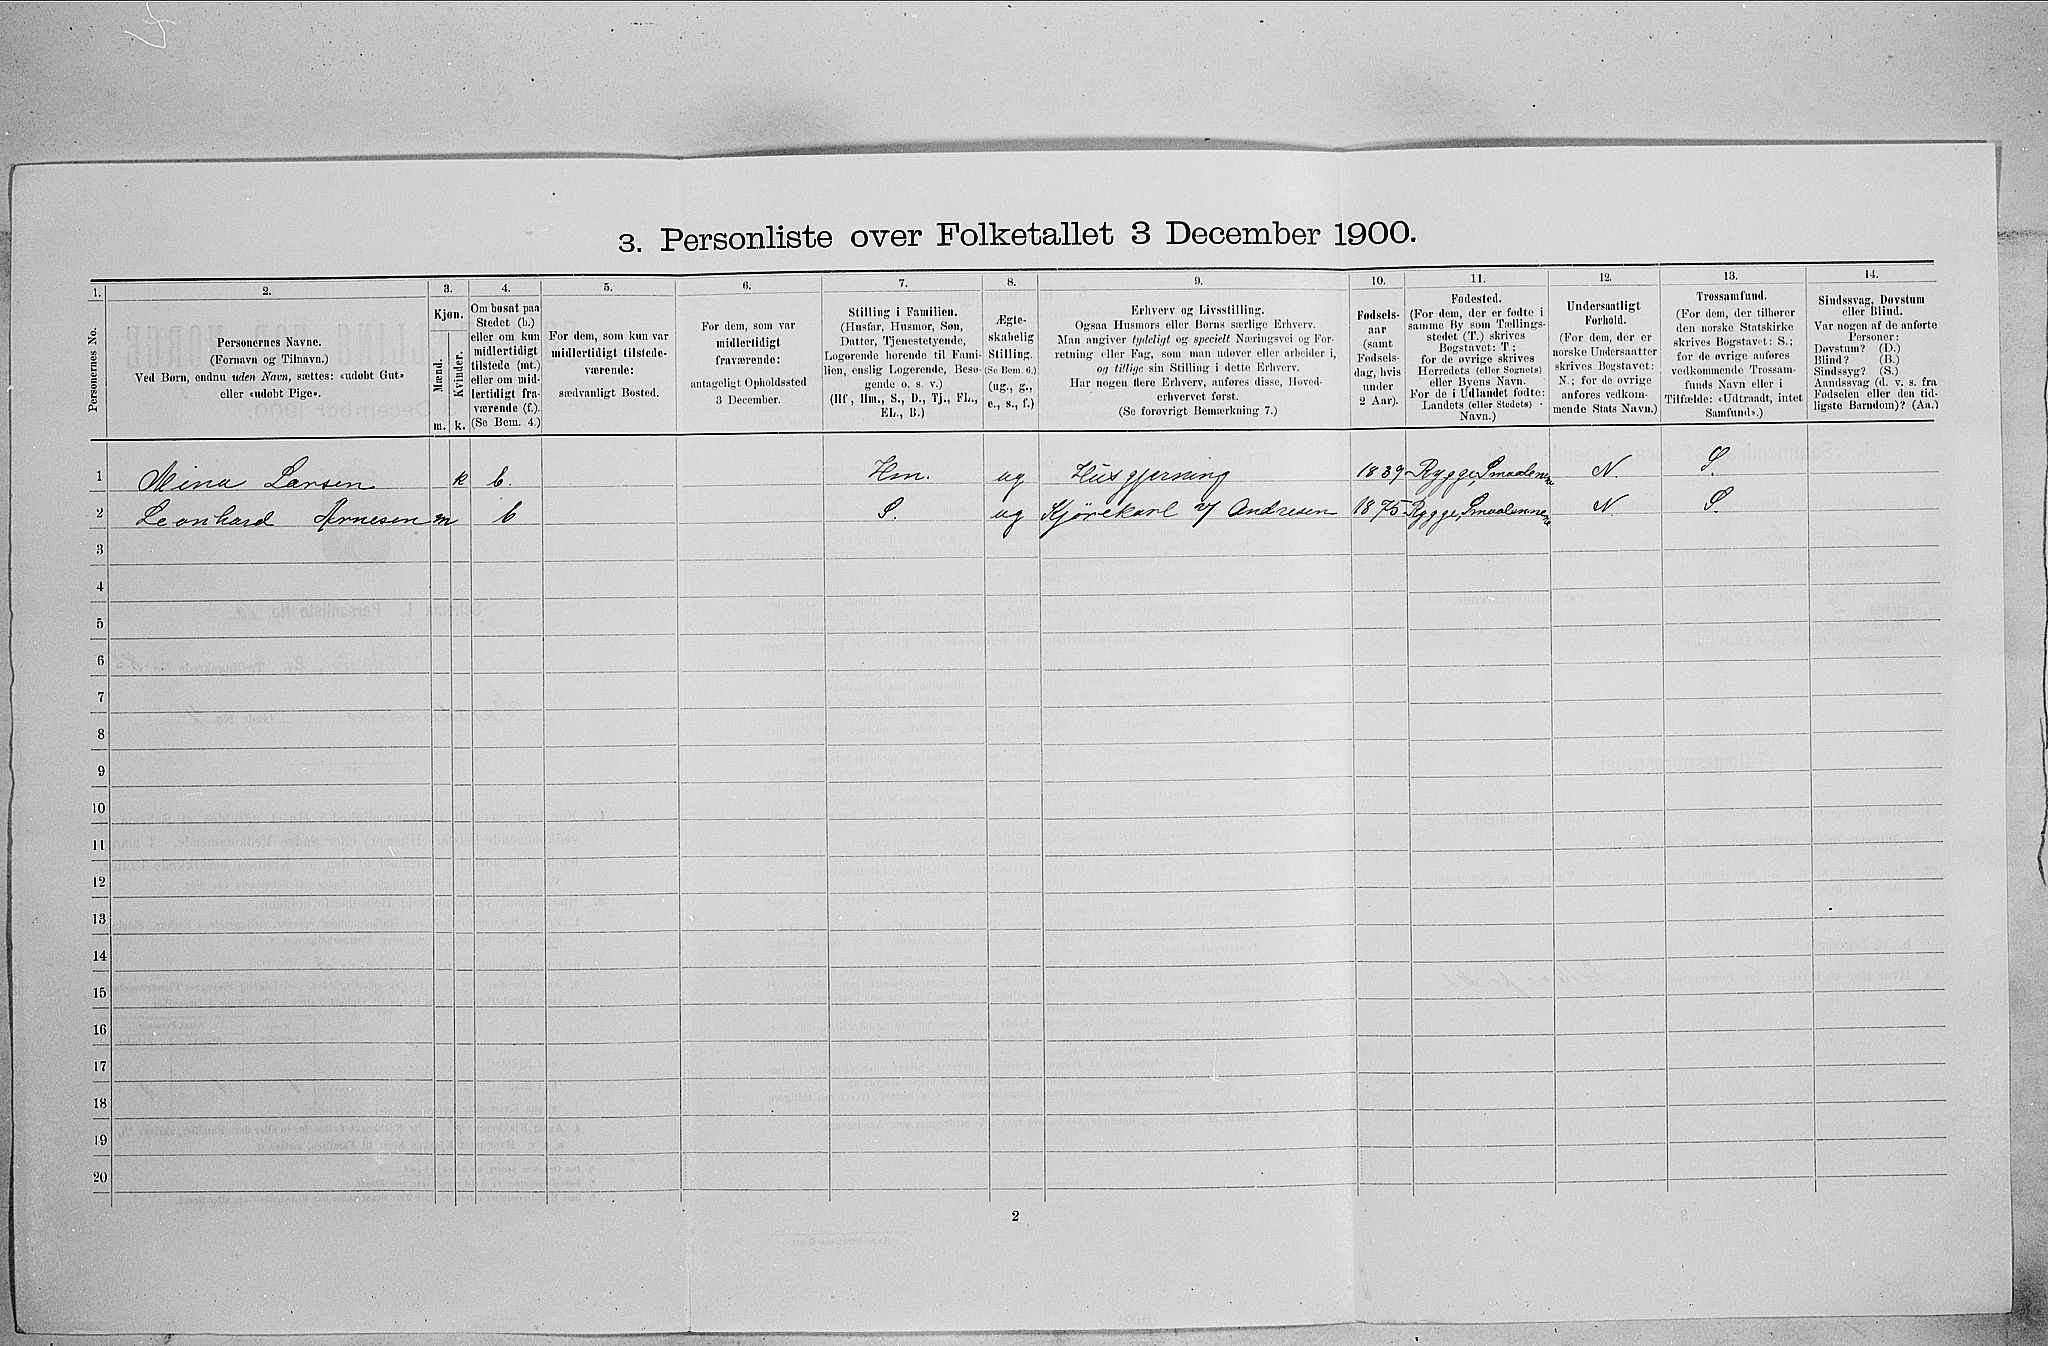 3. Personliste over Folketallet 3 December 1900.
1. 2. 3. 4. 5. 6. 7. 8. 9. 10. 11. 12. 13. 14.
Personernes No.
Personernes Navne.
(Fornavn og Tilnavn.)
Ved Børn, endnu uden Navn, sættes: «udøbt Gut»
eller «udøbt Pige».
Kjøn.
Mænd.
Kvinder.
m. k.
Om bosat paa
Stedet (b.)
eller om kun
midlertidigt
tilstede (mt.)
eller om mid-
lertidigt fra-
værende (f.).
(Se Bem. 4.)
For dem, som kun var
midlertidigt tilstede-
værende:
sædvanligt Bosted.
For dem, som var
midlertidigt
fraværende:
antageligt Opholdssted
3 December.
Stilling i Familien.
(Husfar, Husmor, Søn,
Datter, Tjenestetyende,
Logerende hørende til Fami-
lien, enslig Logerende, Besø-
gende o. s. v.)
(Hf., Hm., S., D., Tj., FL.,
EL., B.)
Ægte-
skabelig
Stilling.
(Se Bem. 6.)
(ug., g.,
e., s., f.)
Erhverv og Livsstilling.
Ogsaa Husmors eller Børns særlige Erhverv.
Man angiver tydeligt og specielt Næringsvei og For-
retning eller Fag, som man udøver eller arbeider i,
og tillige sin Stilling i dette Erhverv.
Har nogen flere Erhverv, anføres disse, Hoved-
erhvervet først.
(Se forøvrigt Bemærkning 7.)
Fødsels-
aar
(samt
Fødsels-
dag, hvis
under
2 Aar).
Fødested.
(For dem, der er fødte i
samme By som Tællings-
stedet (T.) skrives
Bogstavet: T;
for de øvrige skrives
Herredets (eller Sognets)
eller Byens Navn.
For de i Udlandet fødte:
Landets (eller Stedets)
Navn.)
Undersaatligt
Forhold.
(For dem, der er
norske Undersaatter
skrives Bogstavet:
N.; for de øvrige
anføres vedkom-
mende Stats Navn.)
Trossamfund.
(For dem, der tilhører
den norske Statskirke
skrives Bogstavet: S.;
for de øvrige anføres
vedkommende Trossam-
funds Navn eller i
Tilfælde: «Udtraadt, intet
Samfund».)
Sindssvag, Døvstum
eller Blind.
Var nogen af de anførte
Personer:
Døvstum? (D.)
Blind? (B.)
Sindssyg? (S.)
Aandssvag (d. v. s. fra
Fødselen eller den tid-
ligste Barndom)? (Aa.)
1 Mina Larsen k b. Hm. ug Husgjerning 1839 Rygge, Smaalenene N. S.
2 Leonhard Arnesen m b S. ug Kjørekarl v/ Andresen 1875 Rygge, Smaalennene N. S.
3
4
5
6
7
8
9
10
11
12
13
14
15
16
17
18
19
20
2